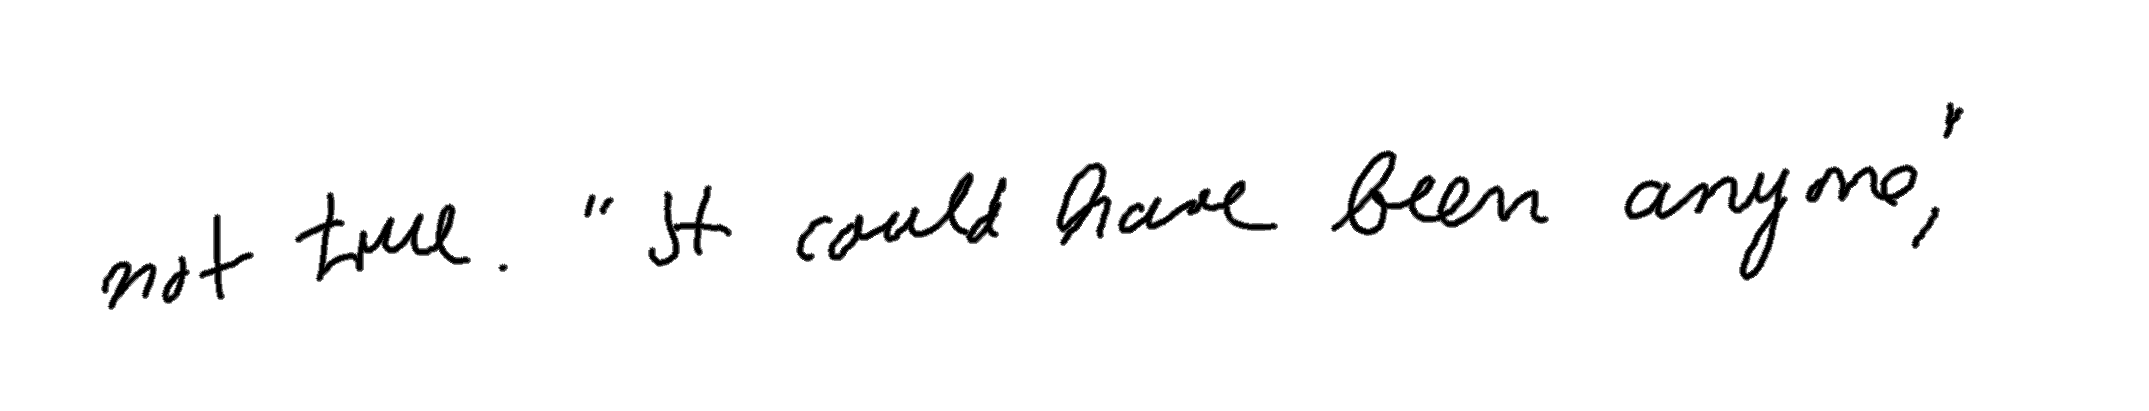 not true. "It could have been anyone,"